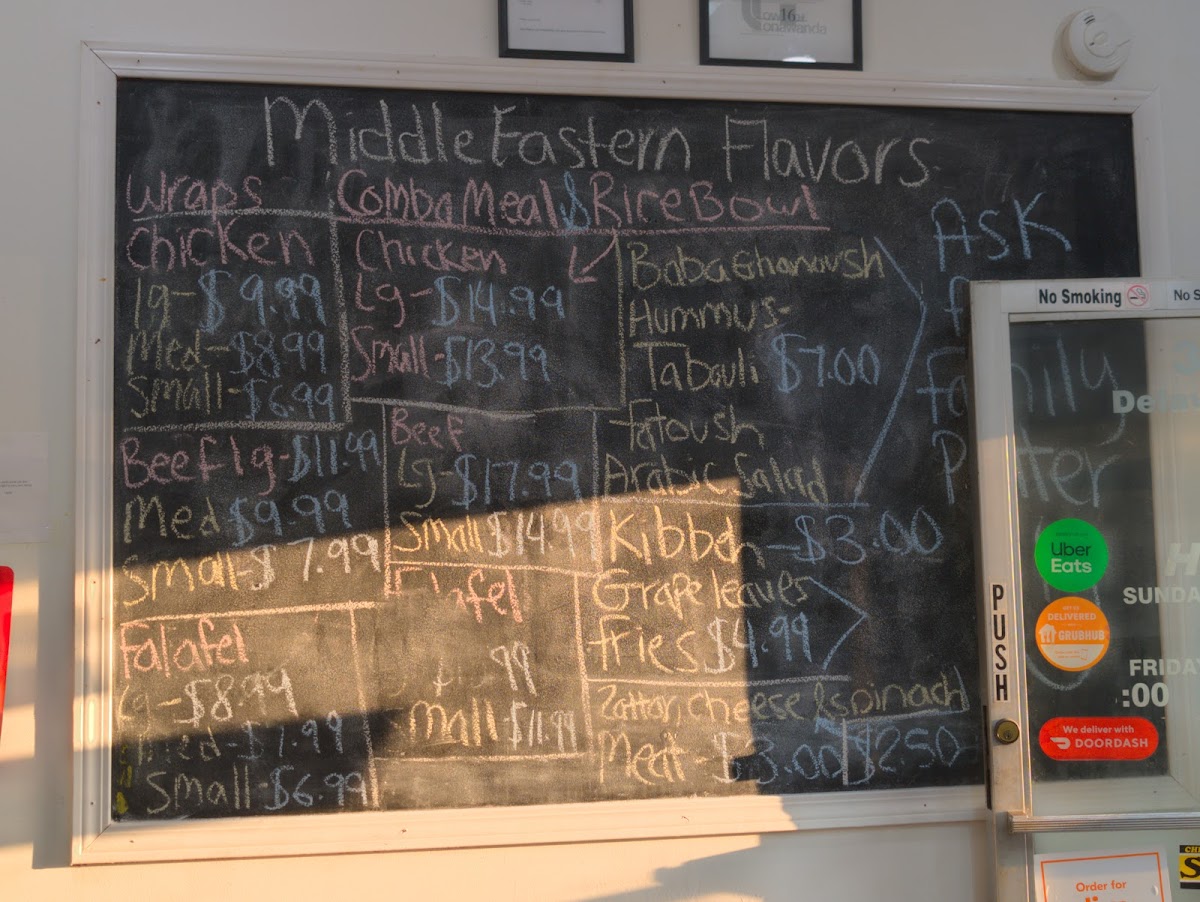 16
onawanda
Middle Eastern Flavors
Wraps
Chicken
lg-$9.99
Med-$8.99
Small-$6.99
Beef lg-$11.99
Med $9.99
Small-$7.99
Falafel
Lg-$8.99
Med-$7.99
Small $6.99
Combo Meal & Rice Bowl
Chicken
Lg-$14.99
Small-$13.99
Beef
Lg-$17.99
Small $14.99
Falafel
99
mall $11.99
Baba Ghanoush
Hummus-
Tabouli $7.00
Fatoush
Arabic Salad
Kibbeh-$3.00
Grape leaves
fries $4.99
Zattar, cheese & spinach
Meat-$3.00 $2.50
Ask
family
No Smoking
No S
PUSH
Uber
Eats
DELIVERED
GRUBHUB
SUNDA
FRIDAY
:00
We deliver with
DOORDASH
Order for